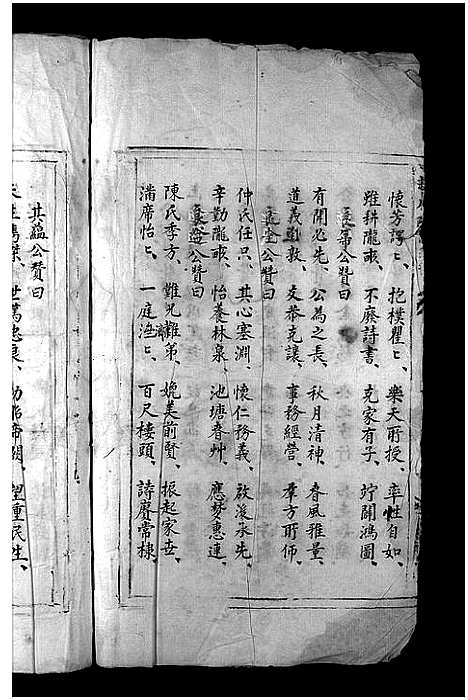 懷芳諤〻、抱樸瞿〻、樂天所授、率性自如、
雖耕隴畝、不廢詩書、克家有子、竚開鴻圖、
公贊曰
有開必先、公為之長、秋月清神、春風雅量、
道義彰教、文恭克讓、事務經營、羣方所師、
公贊曰
仲氏任只、其心塞淵、懷仁務義、啟後承先、
辛勤隴畝、怡養林泉、池塘春艸、應夢惠連、
公贊曰
陳氏季方、難兄難弟、媲美前賢、振起家世、
滿席怡〻、一庭洩〻、百尺樓頭、詩賡常棣、
其蘊公贊曰
世篤忠良、望重民生、